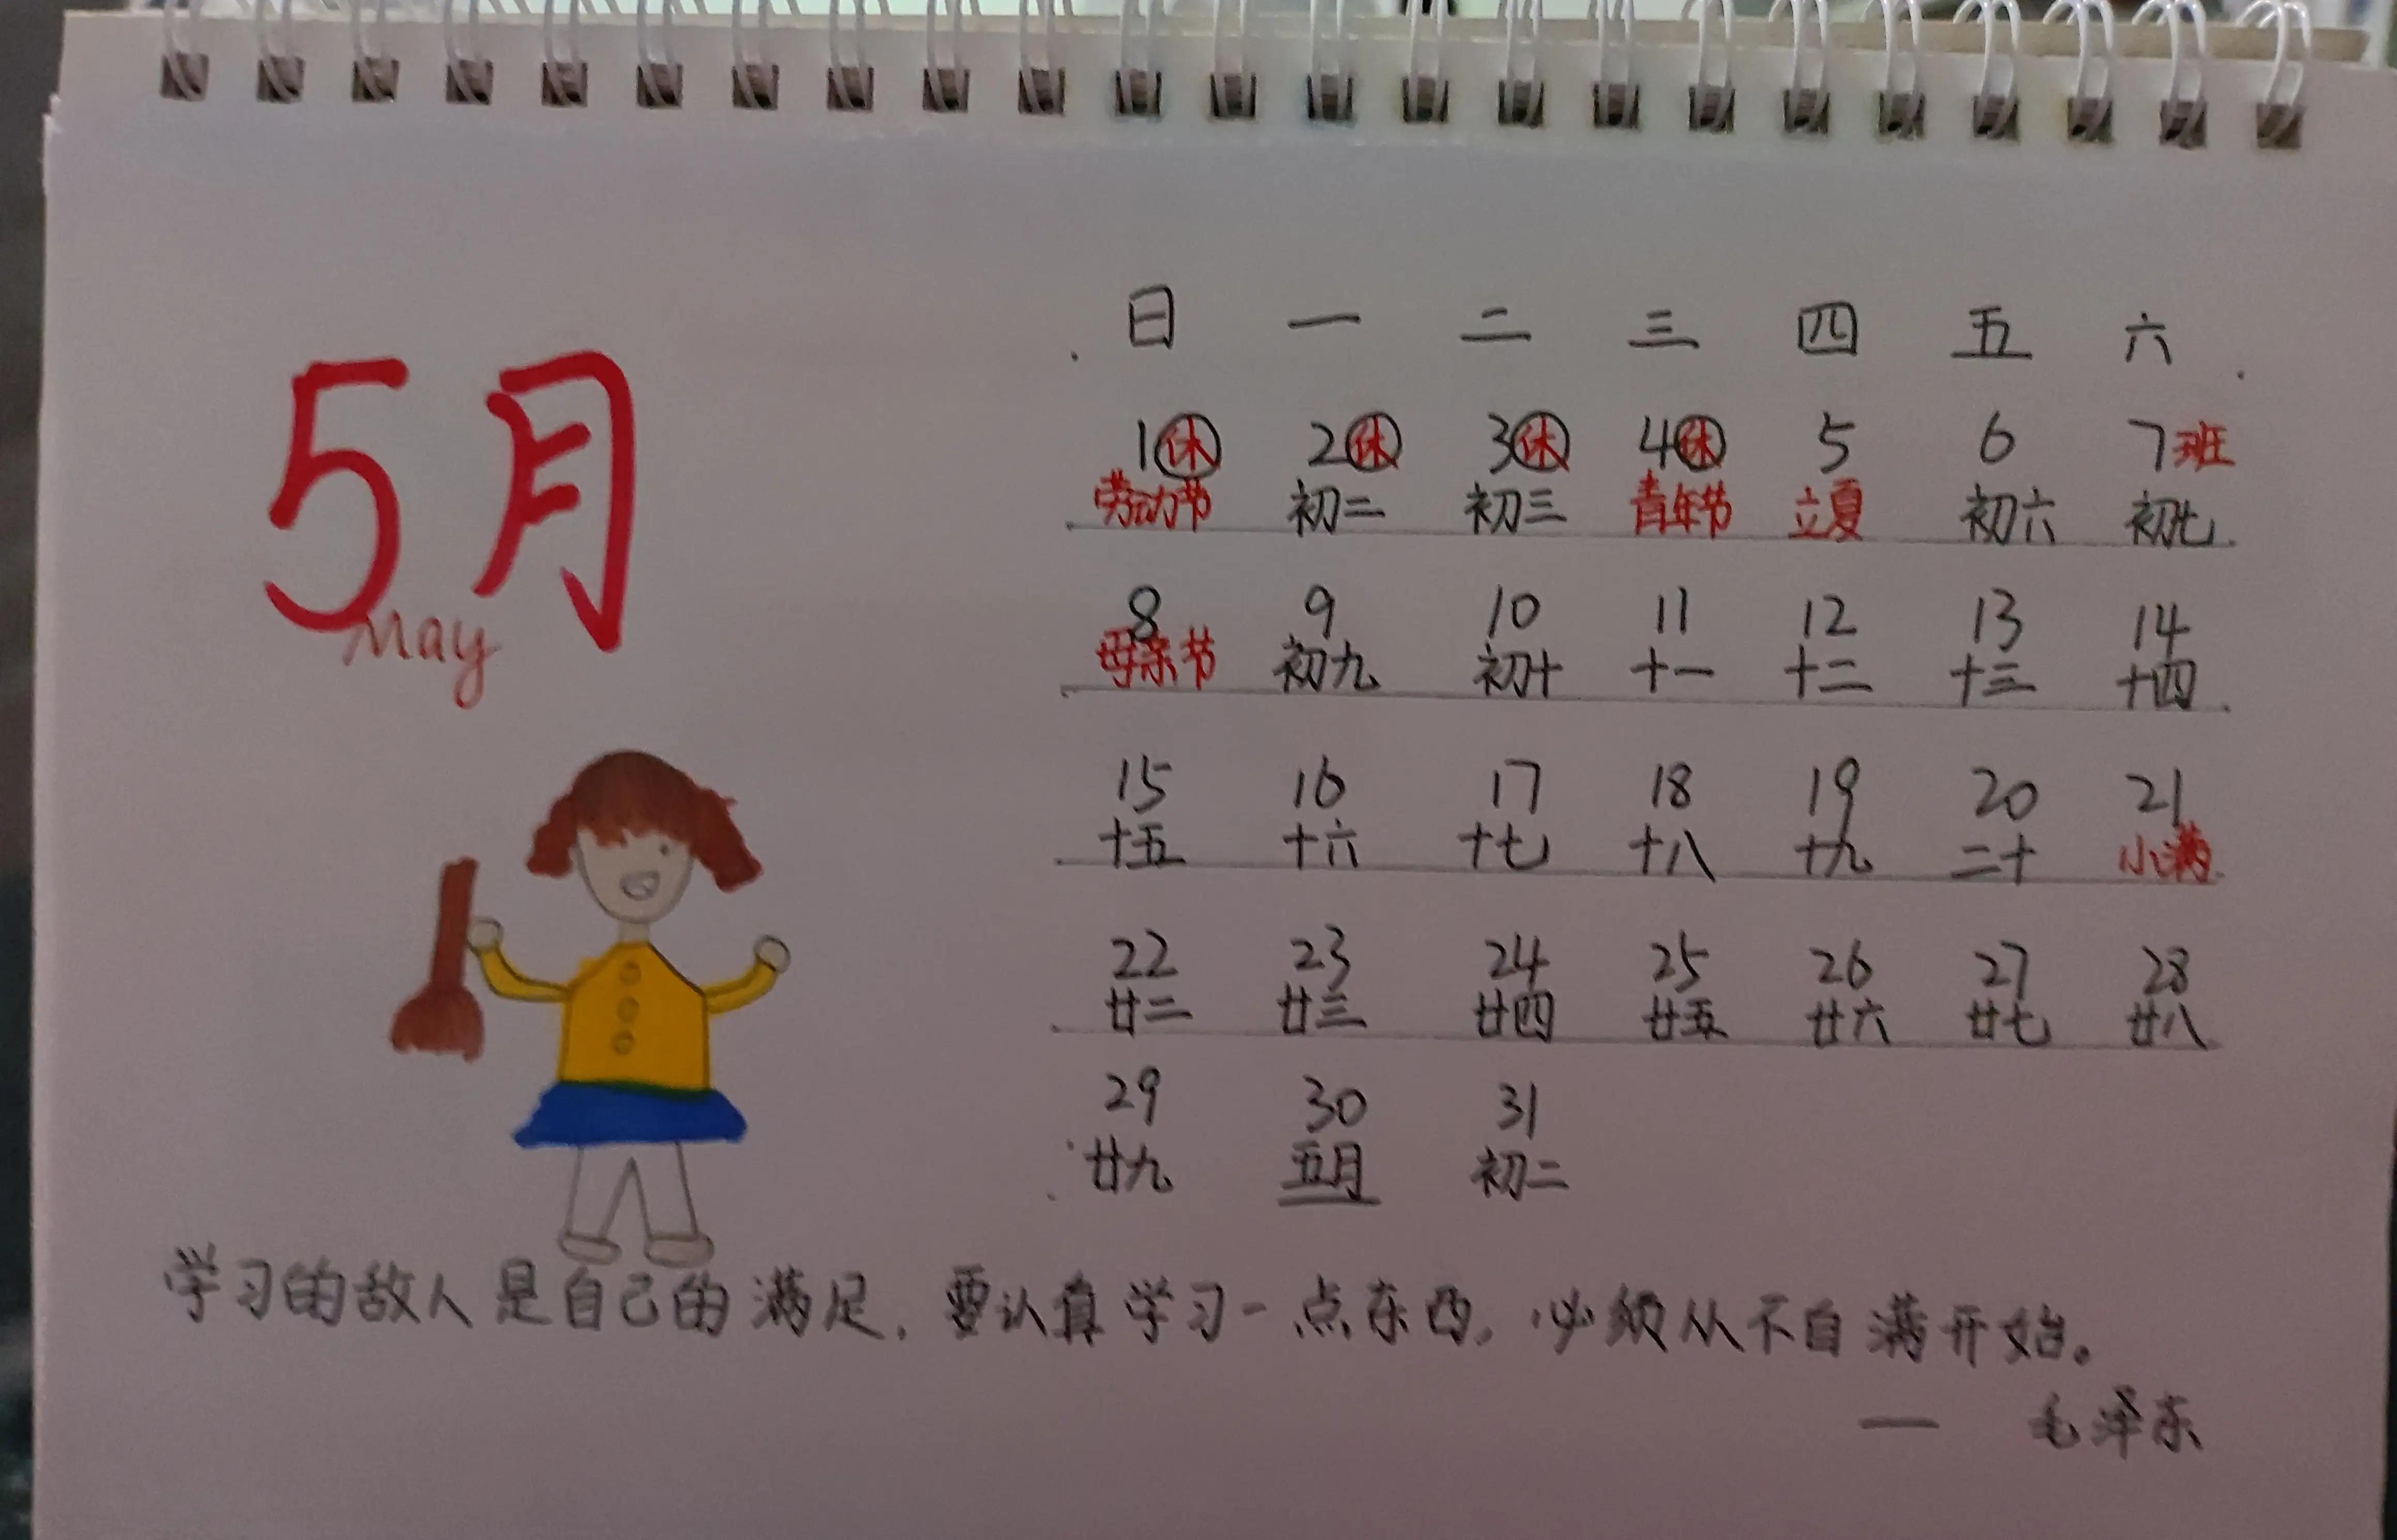 5月
May
日 一 二 三 四 五 六
1休 2休 3休 4休 5 6 7班
劳动节 初二 初三 青年节 立夏 初六 初七
8 9 10 11 12 13 14
母亲节 初九 初十 十一 十二 十三 十四
15 16 17 18 19 20 21
十五 十六 十七 十八 十九 二十 小满
22 23 24 25 26 27 28
廿二 廿三 廿四 廿五 廿六 廿七 廿八
29 30 31
廿九 五月 初二
学习的敌人是自己的满足,要认真学习一点东西,必须从不自满开始。
— 毛泽东